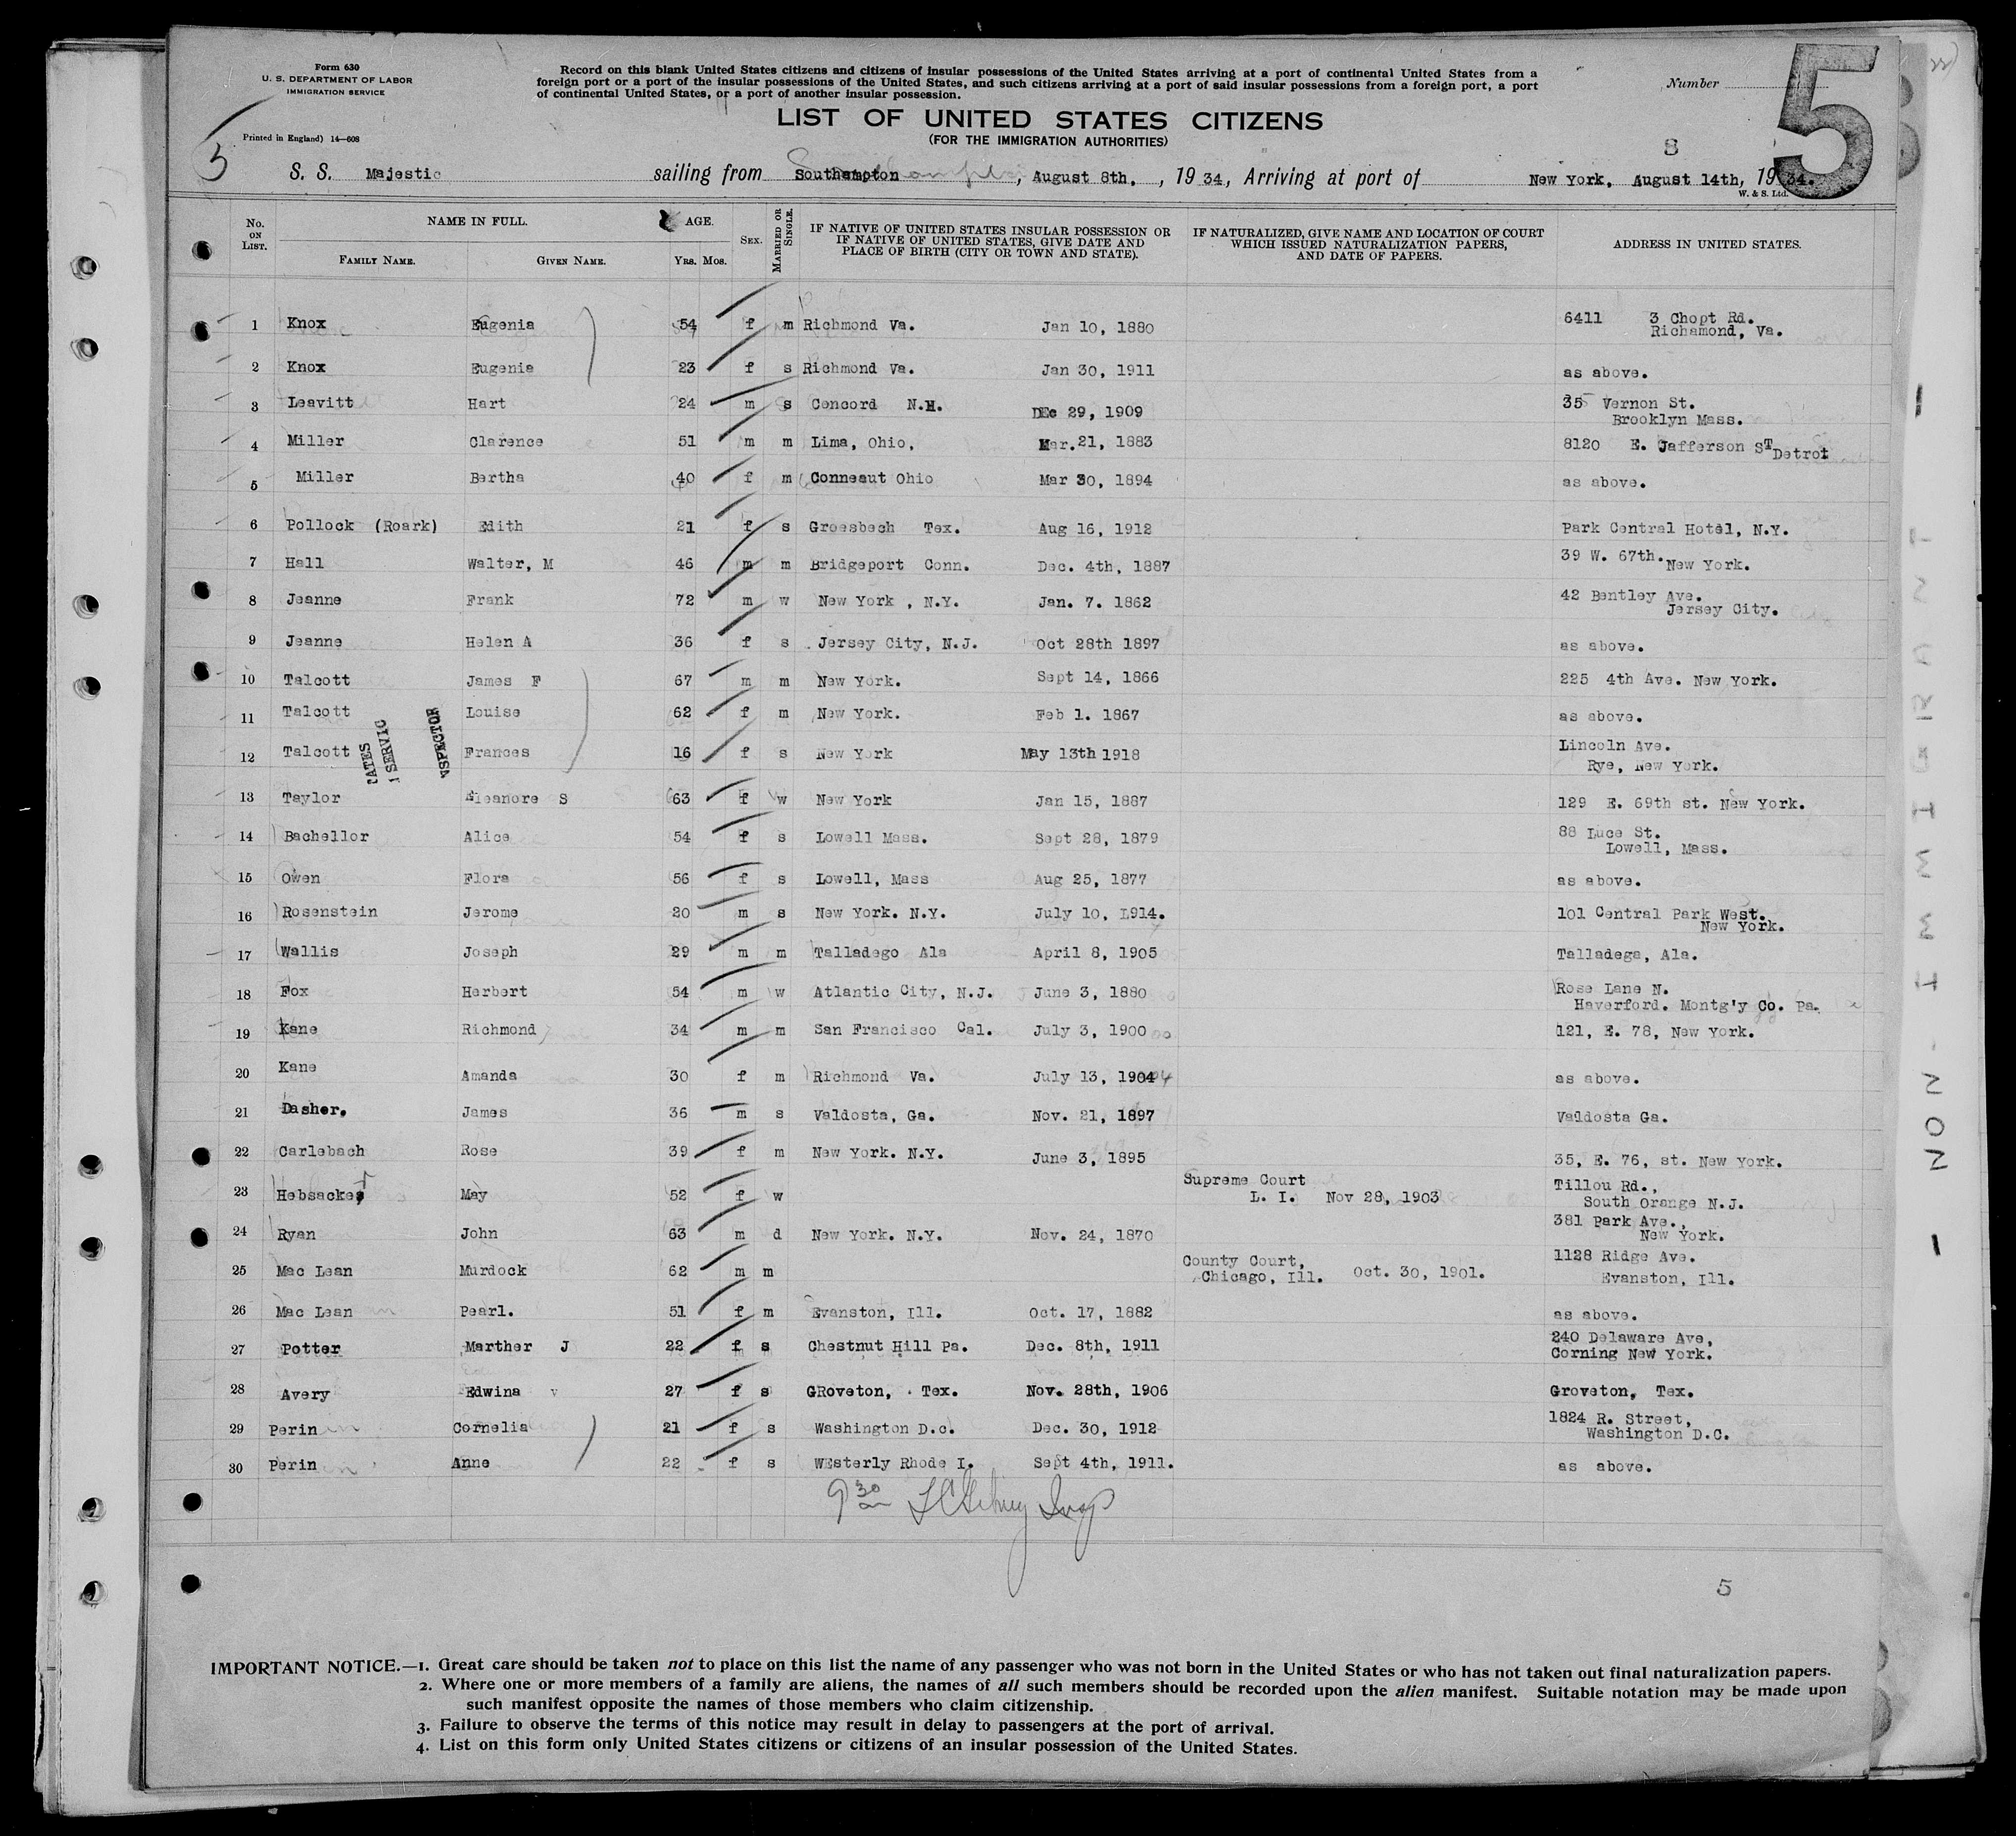 Form 630
U. S. DEPARTMENT OF LABOR
IMMIGRATION SERVICE
Printed in England) 14—608
Record on this blank United States citizens and citizens of insular possessions of the United States arriving at a port of continental United States from a
foreign port or a port of the insular possessions of the United States, and such citizens arriving at a port of said insular possessions from a foreign port, a port
of continental United States, or a port of another insular possession.
Number
5
LIST OF UNITED STATES CITIZENS
(FOR THE IMMIGRATION AUTHORITIES)
5
8
S. S. Majestic sailing from Southampton, August 8th, , 19 34, Arriving at port of New York, August 14th, 19 34.
W. & S. Ltd.
No. ON LIST. NAME IN FULL. AGE. SEX. MARRIED OR SINGLE. IF NATIVE OF UNITED STATES INSULAR POSSESSION OR IF NATIVE OF UNITED STATES, GIVE DATE AND PLACE OF BIRTH (CITY OR TOWN AND STATE). IF NATURALIZED, GIVE NAME AND LOCATION OF COURT WHICH ISSUED NATURALIZATION PAPERS, AND DATE OF PAPERS. ADDRESS IN UNITED STATES.
FAMILY NAME. GIVEN NAME. YRS. MOS.
1 Knox Eugenia 54 f m Richmond Va. Jan 10, 1880 6411 3 Chopt Rd.
Richamond, Va.
2 Knox Eugenia 23 f s Richmond Va. Jan 30, 1911 as above.
3 Leavitt Hart 24 m s Concord N.H. DEc 29, 1909 35 Vernon St.
Brooklyn Mass.
4 Miller Clarence 51 m m Lima, Ohio, Mar.21, 1883 8120 E. Jafferson ST Detrot
5 Miller Bertha 40 f m Conneaut Ohio Mar 30, 1894 as above.
6 Pollock (Roark) Edith 21 f s Groesbech Tex. Aug 16, 1912 Park Central Hotel, N.Y.
7 Hall Walter, M 46 m m Bridgeport Conn. Dec. 4th, 1887 39 W. 67th. New York.
8 Jeanne Frank 72 m w New York , N.Y. Jan. 7. 1862 42 Bentley Ave.
Jersey City.
9 Jeanne Helen A 36 f s Jersey City, N.J. Oct 28th 1897 as above.
10 Talcott James F 67 m m New York. Sept 14, 1866 225 4th Ave. New York.
11 Talcott Louise 62 f m New York. Feb 1. 1867 as above.
12 Talcott Frances 16 f s New York May 13th 1918 Lincoln Ave.
Rye, New York.
TATES
SERVIC
NSPECTOR
13 Taylor Eleanore S 63 f w New York Jan 15, 1887 129 E. 69th st. New York.
14 Bachellor Alice 54 f s Lowell Mass. Sept 28, 1879 88 Luce St.
Lowell, Mass.
15 Owen Flora 56 f s Lowell, Mass Aug 25, 1877 as above.
16 Rosenstein Jerome 20 m s New York. N.Y. July 10, 1914. 101 Central Park West.
New York.
17 Wallis Joseph 29 m m Talladego Ala April 8, 1905 Talladega, Ala.
18 Fox Herbert 54 m w Atlantic City, N.J. June 3, 1880 Rose Lane N.
Haverford. Montg'y Co. Pa.
19 Kane Richmond 34 m m San Francisco Cal. July 3, 1900 121, E. 78, New York.
20 Kane Amanda 30 f m Richmond Va. July 13, 1904 as above.
21 Dasher. James 36 m s Valdosta, Ga. Nov. 21, 1897 Valdosta Ga.
22 Carlebach Rose 39 f m New York. N.Y. June 3, 1895 35, E. 76, st. New York.
23 Hebsacker May 52 f w Supreme Court
L. I. Nov 28, 1903 Tillou Rd.,
South Orange N.J.
24 Ryan John 63 m d New York. N.Y. Nov. 24, 1870 381 Park Ave.,
New York.
25 Mac Lean Murdock 62 m m County Court,
Chicago, Ill. Oct. 30, 1901. 1128 Ridge Ave.
Evanston, Ill.
26 Mac Lean Pearl. 51 f m Evanston, Ill. Oct. 17, 1882 as above.
27 Potter Marther J 22 f s Chestnut Hill Pa. Dec. 8th, 1911 240 Delaware Ave,
Corning New York.
28 Avery Edwina v 27 f s GRoveton, Tex. Nov. 28th, 1906 Groveton, Tex.
29 Perin Cornelia 21 f s Washington D.c. Dec. 30, 1912 1824 R. Street,
Washington D.C.
30 Perin Anne 22 f s WEsterly Rhode I. Sept 4th, 1911. as above.
9 30 am Insp
5
IMPORTANT NOTICE.—1. Great care should be taken not to place on this list the name of any passenger who was not born in the United States or who has not taken out final naturalization papers.
2. Where one or more members of a family are aliens, the names of all such members should be recorded upon the alien manifest. Suitable notation may be made upon
such manifest opposite the names of those members who claim citizenship.
3. Failure to observe the terms of this notice may result in delay to passengers at the port of arrival.
4. List on this form only United States citizens or citizens of an insular possession of the United States.
NON-IMMIGRANT